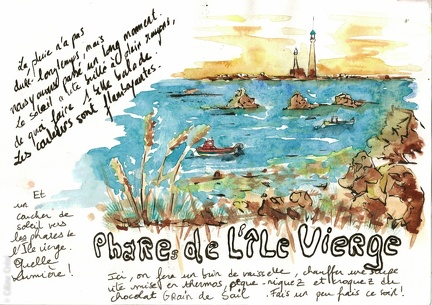 La pluie n'a pas
duré longtemps mais
nous y avons passé un long moment.
Le soleil a vite brillé à plein rayons,
de quoi faire 1 belle balade.
Les couleurs sont flamboyantes.
Et
un
coucher de
soleil vers
les phares de
l'Île vierge.
Quelle
lumière !
Phares de l'Île Vierge
Ici, on fera un brin de vaisselle, chauffer une soupe
vite mise en thermos, pique-niquez et croquez du
chocolat Grain de Sail. Fais un peu frais ce soir !